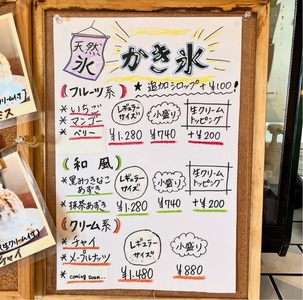 天然
氷
かき氷
★追加シロップ+¥100!
《フルーツ系》
*いちご
*マンゴー
*ベリー
レギュラー
サイズ
小盛り
生クリーム
トッピング
¥1.280
¥740
+¥200
《和風》
*黒みつきなこ
あずき
*抹茶あずき
レギュラー
サイズ
小盛り
生クリーム
トッピング
¥1.280
¥940
+¥200
《クリーム系》
*チャイ
*メープルナッツ
*coming soon...
レギュラー
サイズ
小盛り
¥1.480
¥880
チャイ